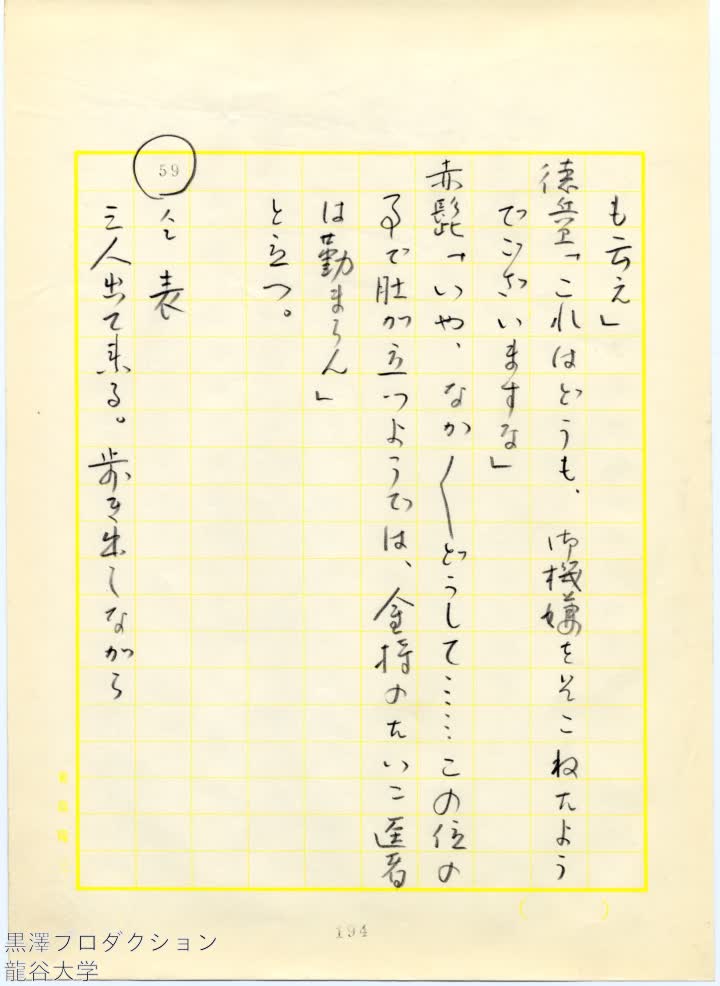 も云え」
徳兵衛「これはどうも、御機嫌をそこねたよう
でございますな」
赤髭「いや、なか〱どうして……この位の
事で肚が立つようでは、金持のたいこ医者
は勤まらん」
と立つ。
59
仝 表
三人出て来る。歩き出しながら
194
黒澤プロダクション
龍谷大学